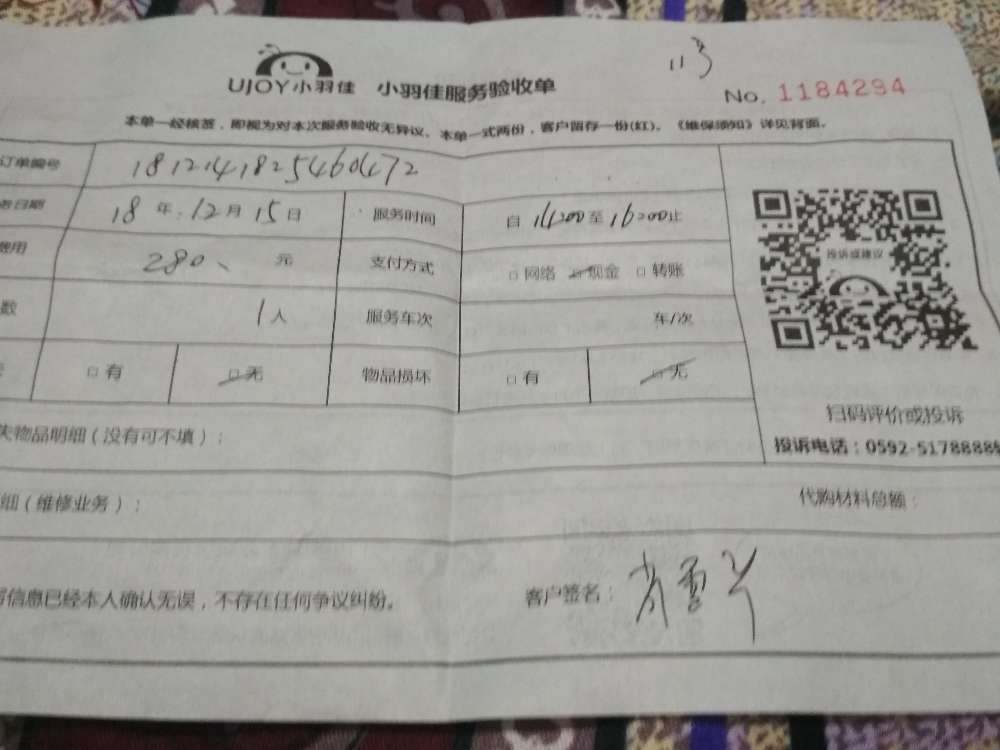 113
UJOY小羽佳 小羽佳服务验收单
No. 1184294
本单一经核签，即视为对本次服务验收无异议。本单一式两份，客户留存一份(红)。《维保须知》详见背面。
订单编号
日期 18年12月15日 服务时间 自14:00至16:00止
费用 280、元 支付方式 □网络 □现金 □转账
数 1人 服务车次 车/次
□有 □无 物品损坏 □有 □无
投诉或建议
扫码评价或投诉
投诉电话：0592-5178888
失物品明细（没有可不填）：
细（维修业务）： 代购材料总额：
信息已经本人确认无误，不存在任何争议纠纷。 客户签名：